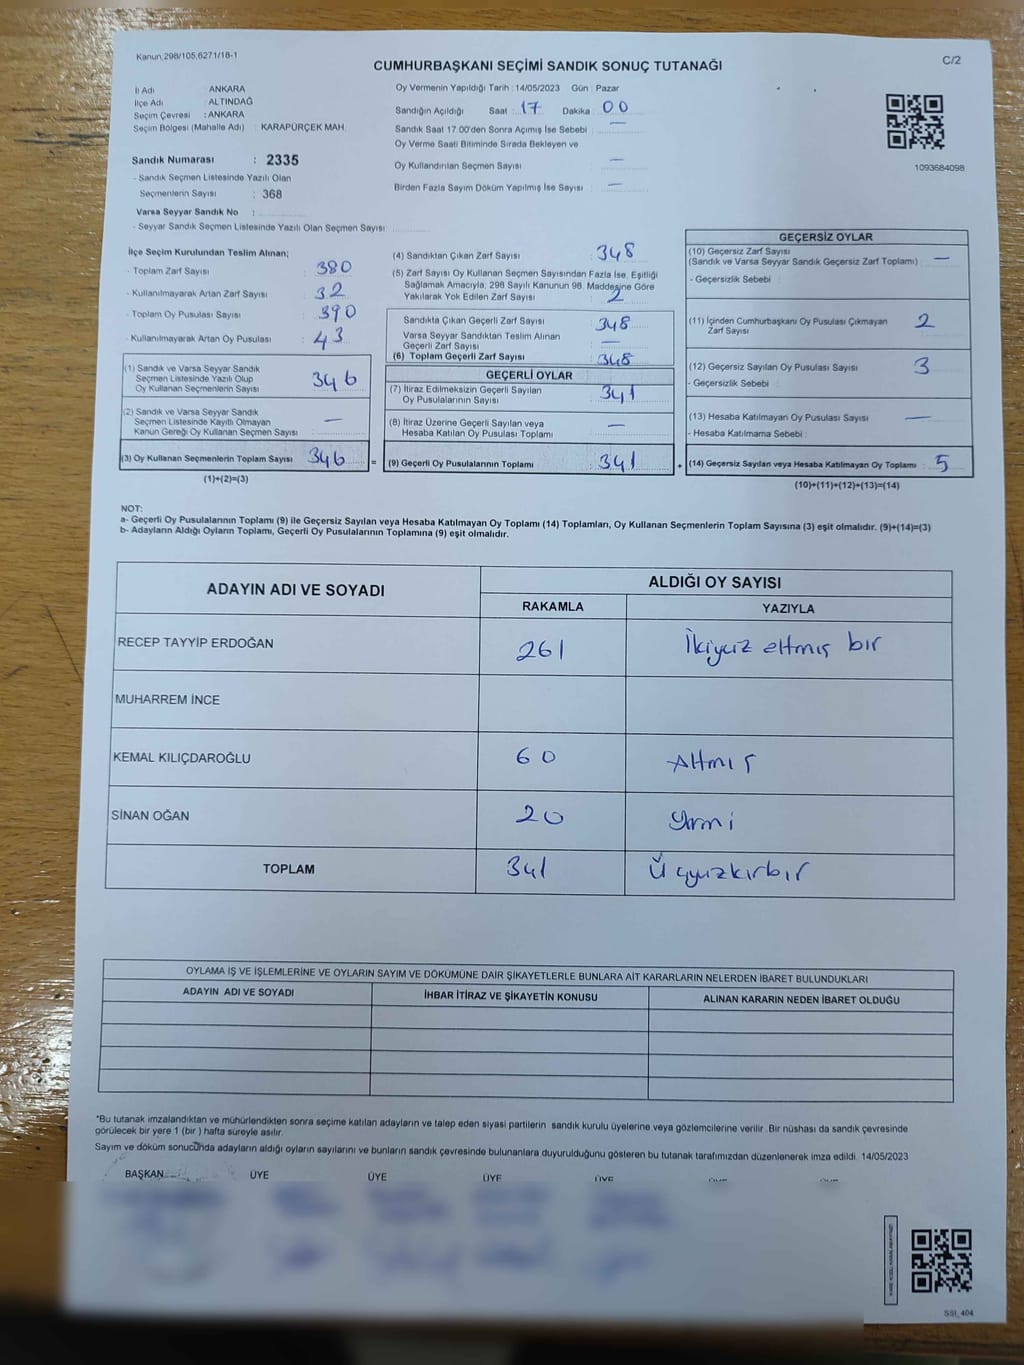 Kanun 298/105,6271/18-1
C/2
CUMHURBAŞKANI SEÇİMİ SANDIK SONUÇ TUTANAĞI
İl Adı ANKARA
İlçe Adı : ALTINDAĞ
Seçim Çevresi : ANKARA
Seçim Bölgesi (Mahalle Adı) : KARAPÜRÇEK MAH.
Sandık Numarası : 2335
- Sandık Seçmen Listesinde Yazılı Olan
Seçmenlerin Sayısı : 368
Varsa Seyyar Sandık No :
- Seyyar Sandık Seçmen Listesinde Yazılı Olan Seçmen Sayısı:
Oy Vermenin Yapıldığı Tarih : 14/05/2023 Gün : Pazar
Sandığın Açıldığı Saat : 17 Dakika : 00
Sandık Saat 17.00'den Sonra Açımış İse Sebebi : —
Oy Verme Saati Bitiminde Sırada Bekleyen ve
Oy Kullandırılan Seçmen Sayısı : —
Birden Fazla Sayım Döküm Yapılmış İse Sayısı : —
1093684098
İlçe Seçim Kurulundan Teslim Alınan;
- Toplam Zarf Sayısı : 380
- Kullanılmayarak Artan Zarf Sayısı : 32
- Toplam Oy Pusulası Sayısı : 390
- Kullanılmayarak Artan Oy Pusulası : 43
(1) Sandık ve Varsa Seyyar Sandık
Seçmen Listesinde Yazılı Olup
Oy Kullanan Seçmenlerin Sayısı : 346
(2) Sandık ve Varsa Seyyar Sandık
Seçmen Listesinde Kayıtlı Olmayan
Kanun Gereği Oy Kullanan Seçmen Sayısı : —
(3) Oy Kullanan Seçmenlerin Toplam Sayısı : 346 =
(1)+(2)=(3)
(4) Sandıktan Çıkan Zarf Sayısı : 348
(5) Zarf Sayısı Oy Kullanan Seçmen Sayısından Fazla İse, Eşitliği
Sağlamak Amacıyla; 298 Sayılı Kanunun 98. Maddesine Göre
Yakılarak Yok Edilen Zarf Sayısı : 2
Sandıkta Çıkan Geçerli Zarf Sayısı : 348
Varsa Seyyar Sandıktan Teslim Alınan
Geçerli Zarf Sayısı : —
(6) Toplam Geçerli Zarf Sayısı : 348
GEÇERLİ OYLAR
(7) İtiraz Edilmeksizin Geçerli Sayılan
Oy Pusulalarının Sayısı : 341
(8) İtiraz Üzerine Geçerli Sayılan veya
Hesaba Katılan Oy Pusulası Toplamı : —
(9) Geçerli Oy Pusulalarının Toplamı : 341 +
GEÇERSİZ OYLAR
(10) Geçersiz Zarf Sayısı
(Sandık ve Varsa Seyyar Sandık Geçersiz Zarf Toplamı) : —
- Geçersizlik Sebebi :
(11) İçinden Cumhurbaşkanı Oy Pusulası Çıkmayan
Zarf Sayısı : 2
(12) Geçersiz Sayılan Oy Pusulası Sayısı : 3
- Geçersizlik Sebebi :
(13) Hesaba Katılmayan Oy Pusulası Sayısı : —
- Hesaba Katılmama Sebebi :
(14) Geçersiz Sayılan veya Hesaba Katılmayan Oy Toplamı : 5
(10)+(11)+(12)+(13)=(14)
NOT:
a- Geçerli Oy Pusulalarının Toplamı (9) ile Geçersiz Sayılan veya Hesaba Katılmayan Oy Toplamı (14) Toplamları, Oy Kullanan Seçmenlerin Toplam Sayısına (3) eşit olmalıdır. (9)+(14)=(3)
b- Adayların Aldığı Oyların Toplamı, Geçerli Oy Pusulalarının Toplamına (9) eşit olmalıdır.
ADAYIN ADI VE SOYADI
ALDIĞI OY SAYISI
RAKAMLA YAZIYLA
RECEP TAYYİP ERDOĞAN 261 İkiyüz eltmış bir
MUHARREM İNCE
KEMAL KILIÇDAROĞLU 60 Altmış
SİNAN OĞAN 20 Yirmi
TOPLAM 341 Üçyüzkırbır
OYLAMA İŞ VE İŞLEMLERİNE VE OYLARIN SAYIM VE DÖKÜMÜNE DAİR ŞİKAYETLERLE BUNLARA AİT KARARLARIN NELERDEN İBARET BULUNDUKLARI
ADAYIN ADI VE SOYADI İHBAR İTİRAZ VE ŞİKAYETİN KONUSU ALINAN KARARIN NEDEN İBARET OLDUĞU
*Bu tutanak imzalandıktan ve mühürlendikten sonra seçime katılan adayların ve talep eden siyasi partilerin sandık kurulu üyelerine veya gözlemcilerine verilir. Bir nüshası da sandık çevresinde
görülecek bir yere 1 (bir ) hafta süreyle asılır.
Sayım ve döküm sonucunda adayların aldığı oyların sayılarını ve bunların sandık çevresinde bulunanlara duyurulduğunu gösteren bu tutanak tarafımızdan düzenlenerek imza edildi. 14/05/2023
BAŞKAN ÜYE ÜYE ÜYE ÜYE
SSI_404